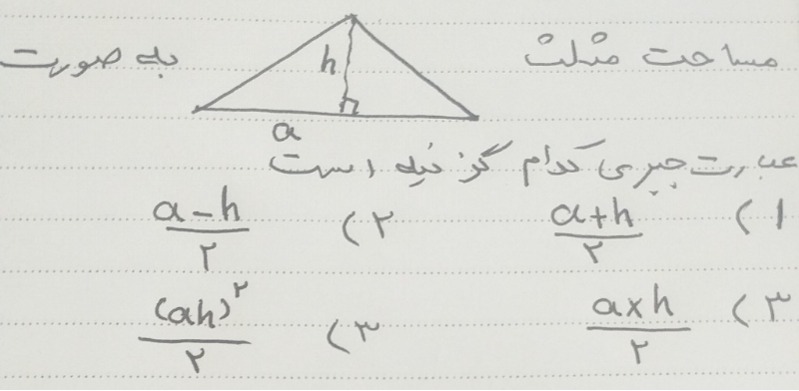 مساحت مثلث h a به صورت
عبارت جبری کدام گزینه است
۱) a+h/۲ ۲) a-h/۲
۳) a×h/۲ ۳) (ah)^۲/۲